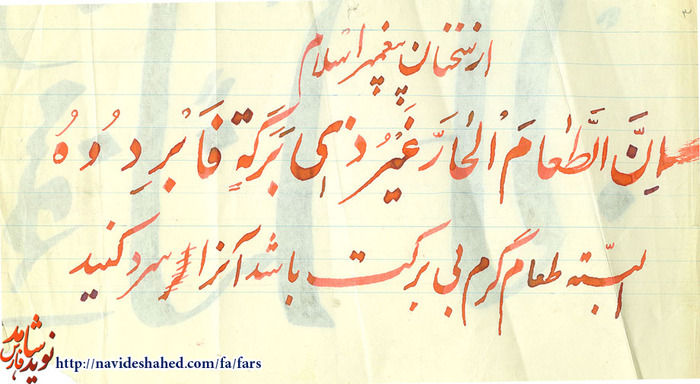 ۳
از سخنان پیغمبر اسلام
اِنَّ الطَّعامَ الْحارَّ غَیْرُ ذی بَرَکَةٍ فَاَبْرِدُوهُ
البتّه طعام گرم بی برکت باشد آنرا سرد کنید
نوید شاهد
فارس
http://navideshahed.com/fa/fars